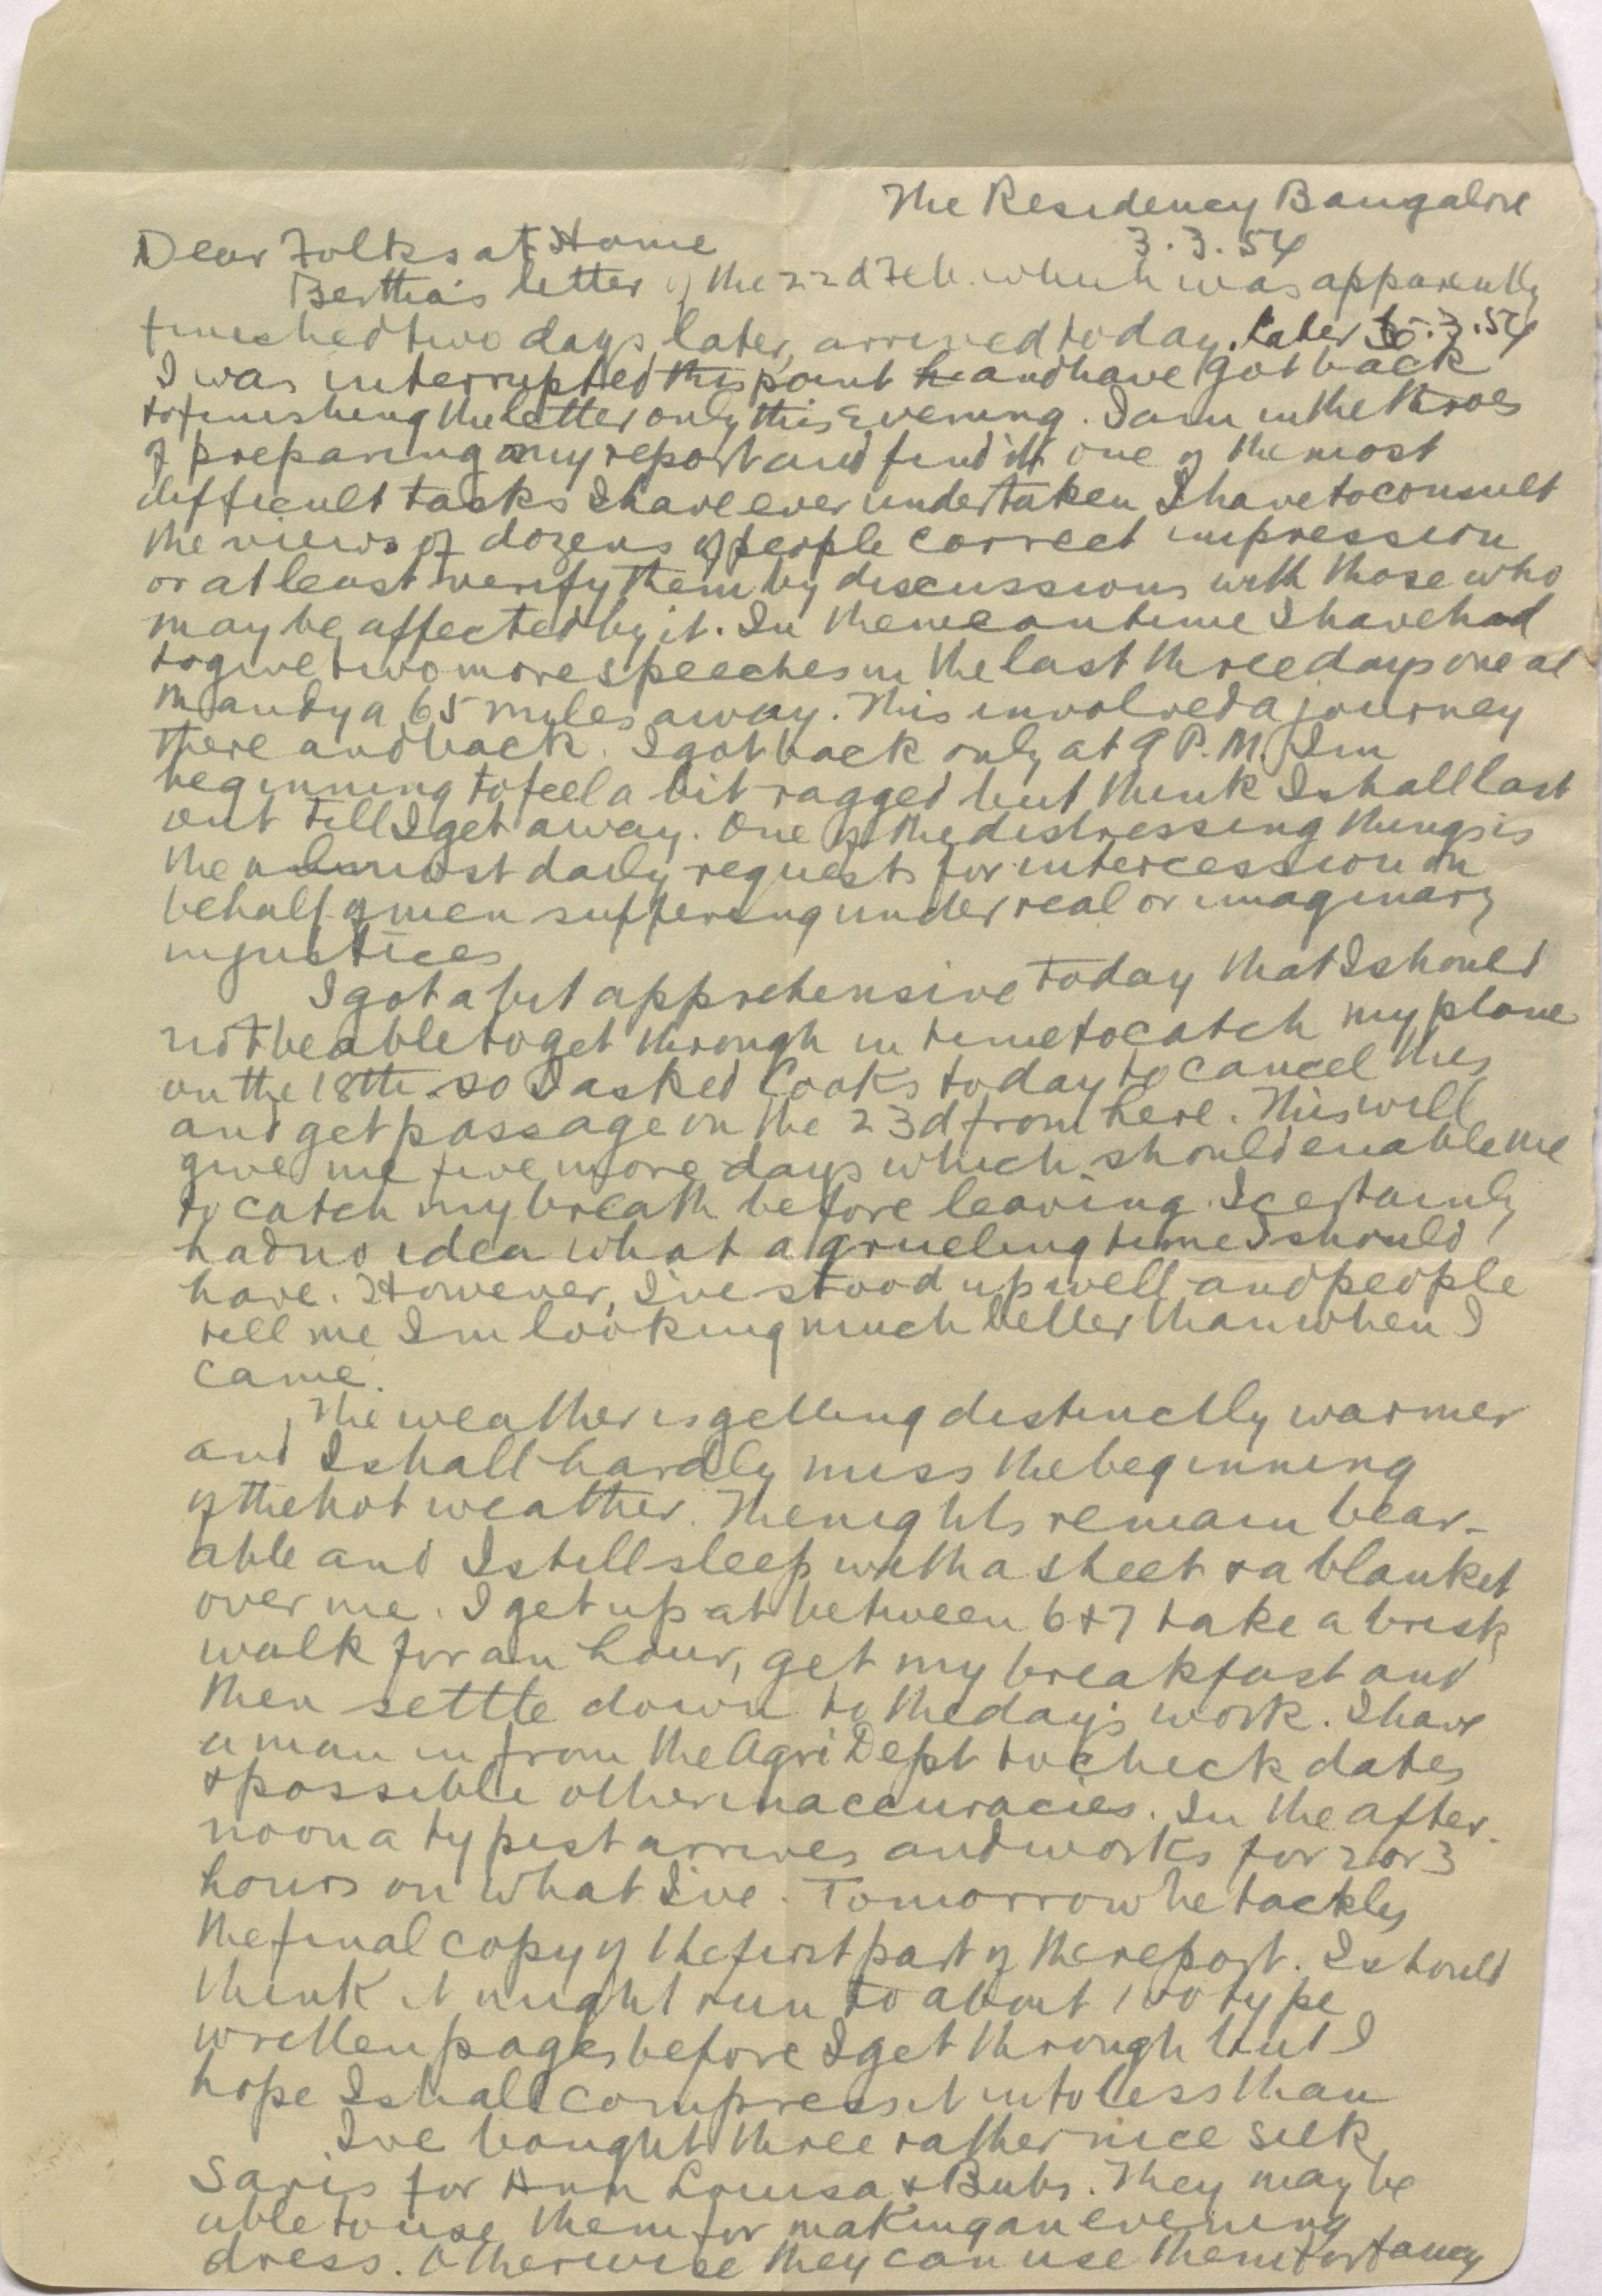 The Residency Bangalore
3.3.54
Dear Folks at Home
Bertha's letter of the 22d Feb. which was apparently
finished two days later, arrived today. Later 6.3.54
I was interrupted this point and have got back
to finishing the letter only this evening. I am in the throes
of preparing my report and find it one of the most
difficult tasks I have ever undertaken I have to consult
the views of dozens of people correct impression
or at least verify them by discussions with those who
may be affected by it. In the meantime I have had
to give two more speeches in the last three days one at
Mandya 65 myles away. This involved a journey
there and back. I got back only at 9 P.M. I'm
beginning to feel a bit ragged but think I shall last
out till I get away. One of the distressing things is
the almost daily requests for intercession on
behalf of men suffering under real or imaginary
injustices
I got a bit apprehensive today that I should
not be able to get through in time to catch my plane
on the 18th so I asked Cooks today to cancel this
and get passage on the 23d from here. This will
give me five more days which should enable me
to catch my breath before leaving. I certainly
had no idea what a grueling time I should
have. However, I've stood up well and people
tell me I'm looking much better than when I
came.
The weather is getting distinctly warmer
and I shall hardly miss the beginning
of the hot weather. The nights remain bear-
able and I still sleep with a sheet & a blanket
over me. I get up at between 6 & 7 take a brisk
walk for an hour, get my breakfast and
then settle down to the day's work. I have
a man in from the Agri Dept to check dates
& possible other inaccuracies. In the after-
noon a typist arrives and works for 2 or 3
hours on what I've. Tomorrow he tackles
the final copy of the first part of the report. I should
think it might run to about 100 type
written pages before I get through but I
hope I shall compress it into less than
I've bought three rather nice silk
Saris for Ann Louisa & Bubs. They may be
able to use them for making an evening
dress. Otherwise they can use them for fancy